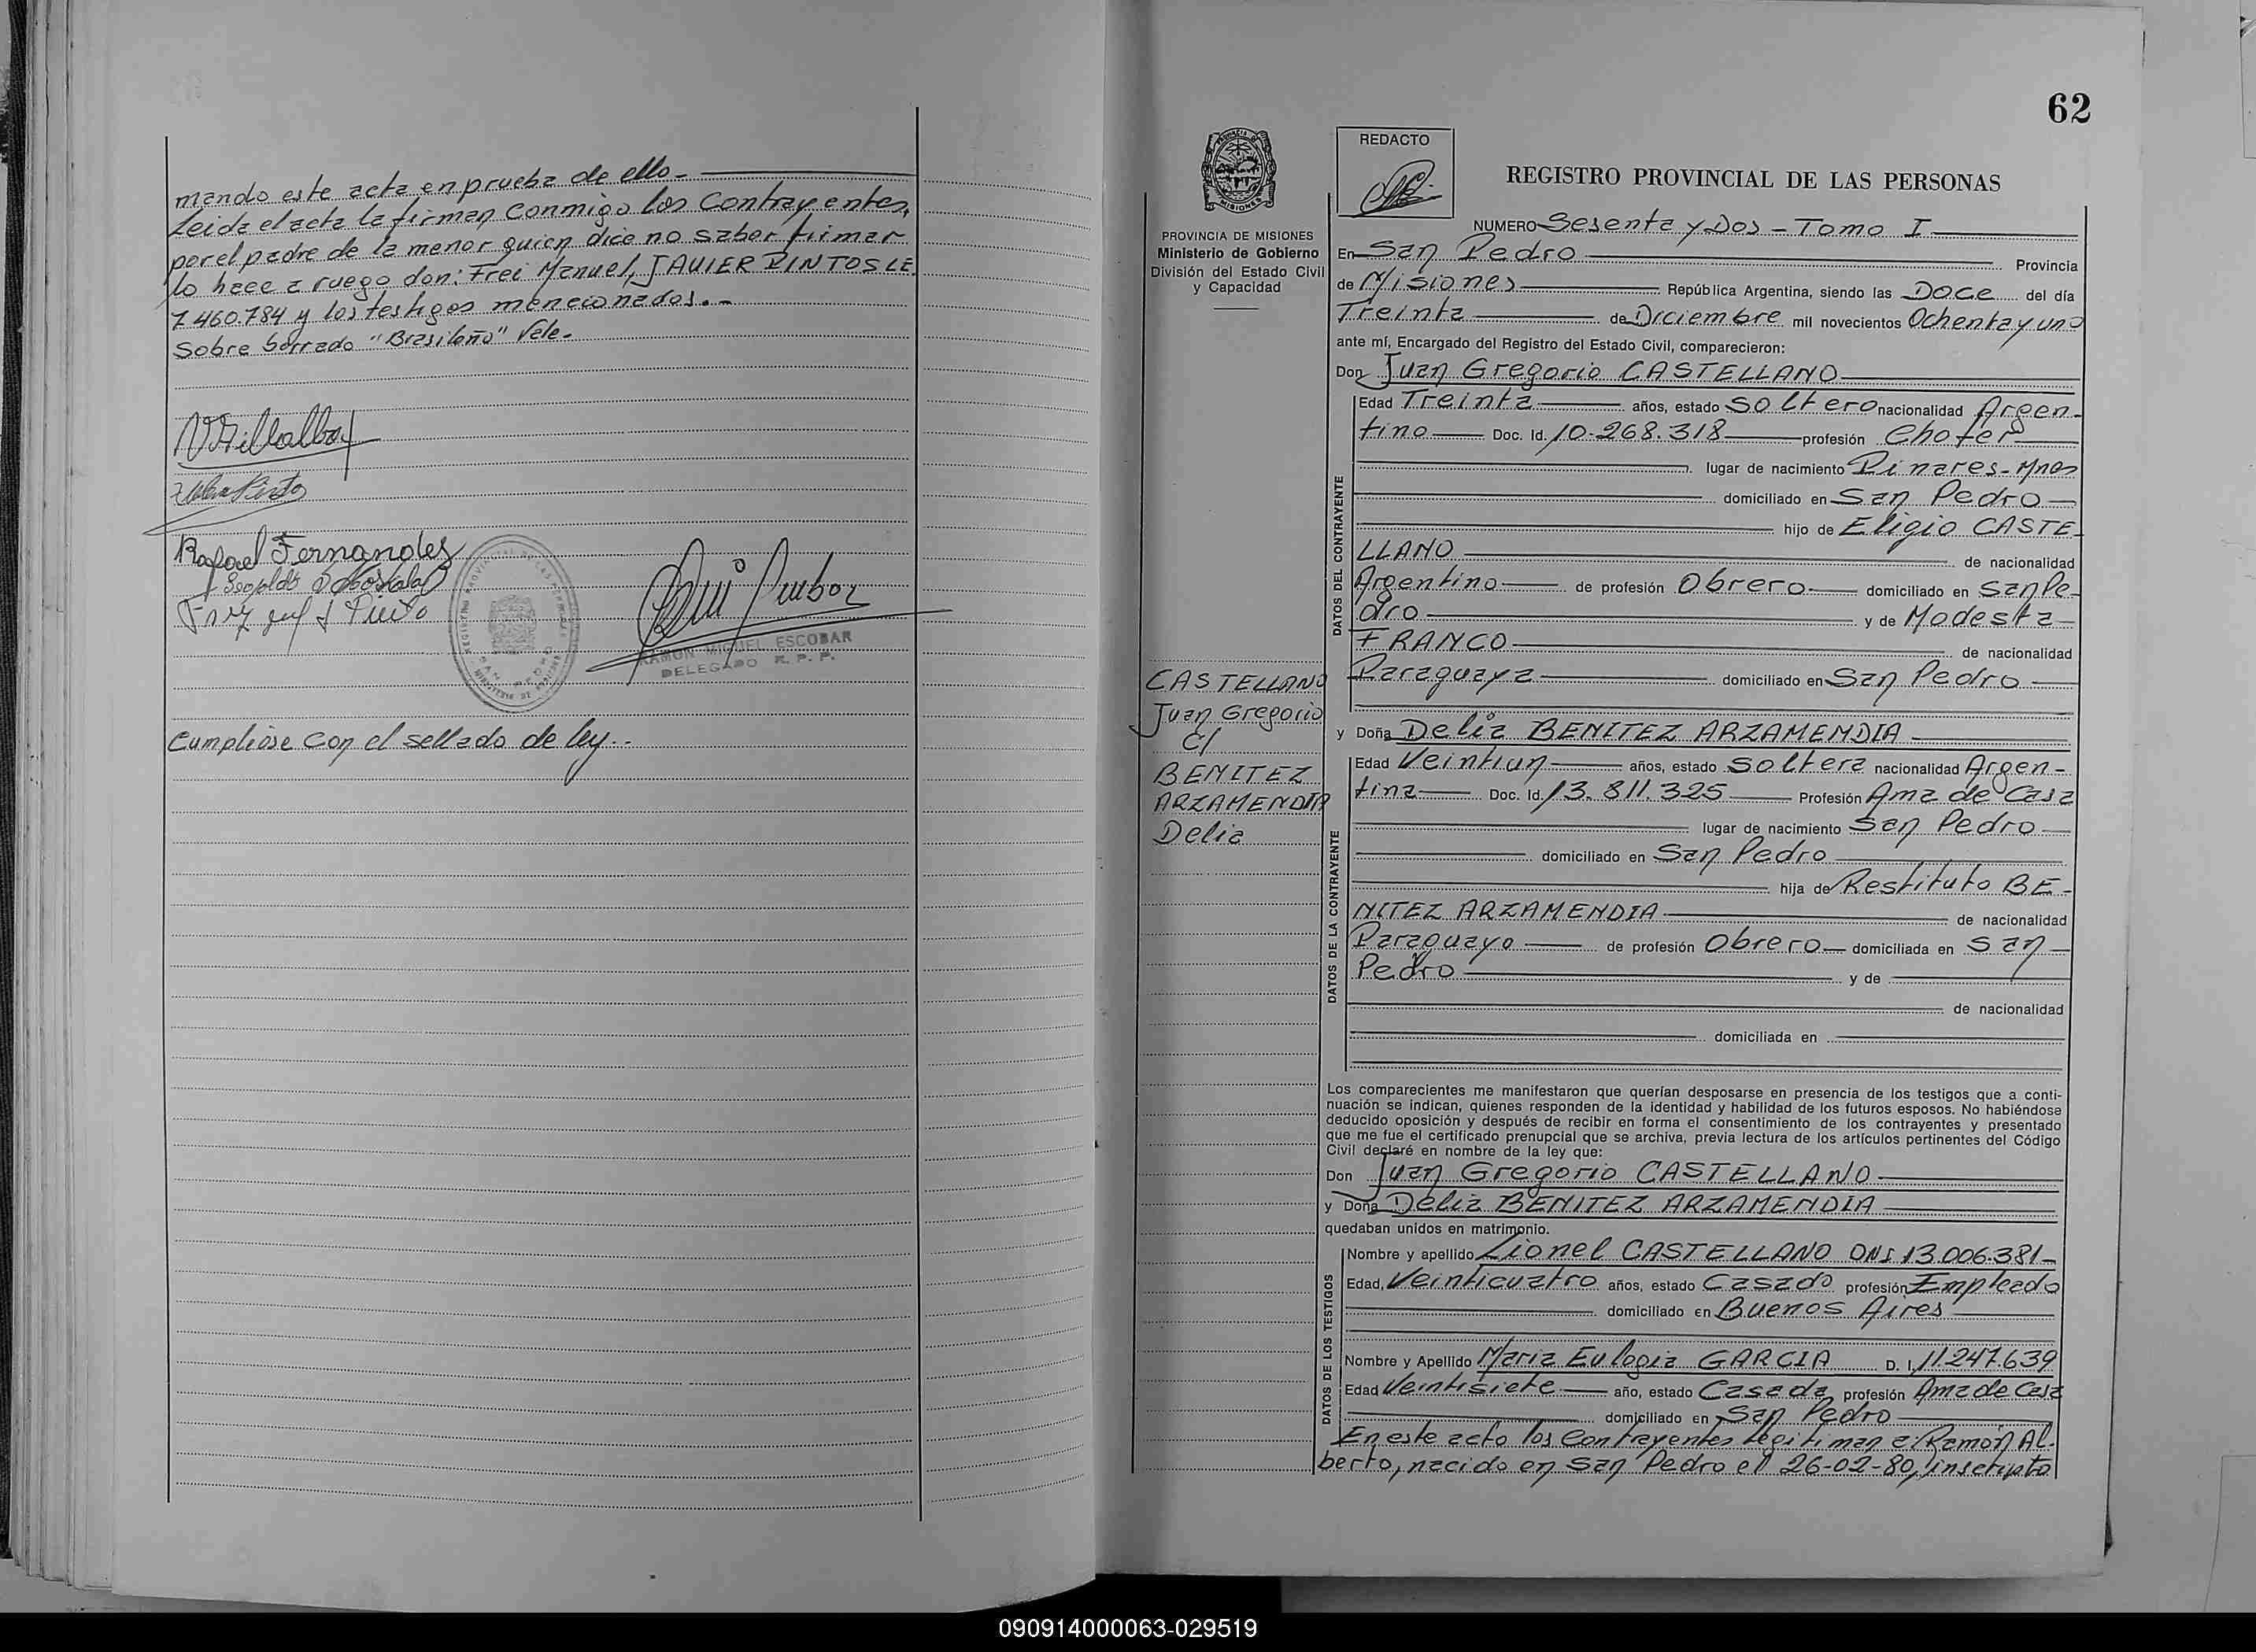 mando este acta en prueba de ello-
Leida el acta la firman conmigo los contrayentes,
por el padre de la menor quien dice no saber firmar
lo hace a ruego don: Frei Manuel, JAVIER PINTOS LE.
7.460.784 y los testigos mencionados.-
Sobre borrado "Brasileño" Vale-
Rafael Fernandez
RAMON MIGUEL ESCOBAR
DELEGADO R. P. P.
Cumplióse con el sellado de ley.-
62
PROVINCIA DE MISIONES
Ministerio de Gobierno
División del Estado Civil
y Capacidad
CASTELLANO
Juan Gregorio
C/
BENITEZ
ARZAMENDIA
Delia
REDACTO
REGISTRO PROVINCIAL DE LAS PERSONAS
NUMERO Sesenta y Dos - Tomo I
En San Pedro Provincia
de Misiones República Argentina, siendo las Doce del día
Treinta de Diciembre mil novecientos Ochenta y uno
ante mí, Encargado del Registro del Estado Civil, comparecieron:
Don Juan Gregorio CASTELLANO
DATOS DEL CONTRAYENTE
Edad Treinta años, estado Soltero nacionalidad Argen-
tino Doc. Id. 10.268.318 profesión Chofer
lugar de nacimiento Pinares-Mnes
domiciliado en San Pedro
hijo de Eligio CASTE-
LLANO de nacionalidad
Argentino de profesión Obrero domiciliado en San Pe-
dro y de Modesta
FRANCO de nacionalidad
Paraguaya domiciliado en San Pedro
y Doña Delia BENITEZ ARZAMENDIA
DATOS DE LA CONTRAYENTE
Edad Veintiun años, estado Soltera nacionalidad Argen-
tina Doc. Id. 13.811.325 Profesión Ama de Casa
lugar de nacimiento San Pedro
domiciliado en San Pedro
hija de Restituto BE-
NITEZ ARZAMENDIA de nacionalidad
Paraguayo de profesión Obrero domiciliada en San
Pedro y de
de nacionalidad
domiciliada en
Los comparecientes me manifestaron que querían desposarse en presencia de los testigos que a conti-
nuación se indican, quienes responden de la identidad y habilidad de los futuros esposos. No habiéndose
deducido oposición y después de recibir en forma el consentimiento de los contrayentes y presentado
que me fue el certificado prenupcial que se archiva, previa lectura de los artículos pertinentes del Código
Civil declaré en nombre de la ley que:
Don Juan Gregorio CASTELLANO
y Doña Delia BENITEZ ARZAMENDIA
quedaban unidos en matrimonio.
DATOS DE LOS TESTIGOS
Nombre y apellido Lionel CASTELLANO DNI 13.006.381-
Edad, Veinticuatro años, estado Casado profesión Empleado
domiciliado en Buenos Aires
Nombre y Apellido Maria Eulogia GARCIA D. I. 11.247.639
Edad Veintisiete año, estado Casada profesión Ama de Casa
domiciliado en San Pedro
En este acto los contrayentes legitiman a: Ramón Al-
berto, nacido en San Pedro el 26-02-80, inscripto
090914000063-029519